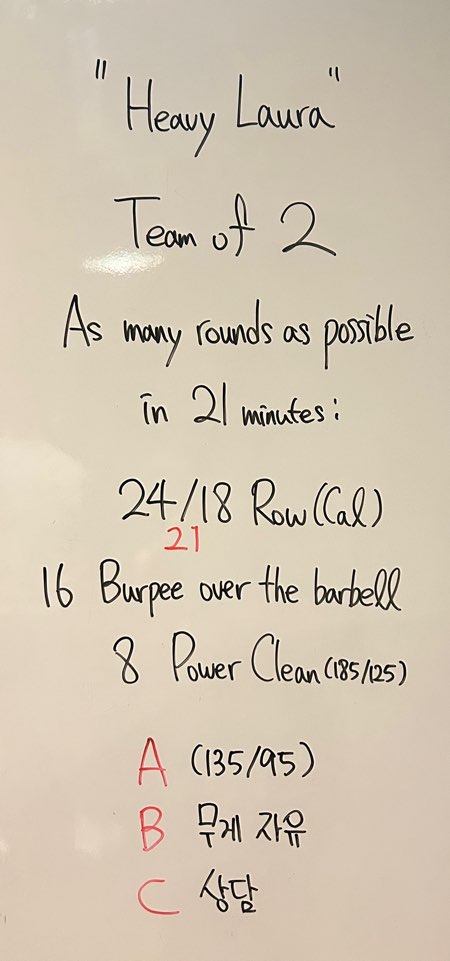 "Heavy Laura"
Team of 2
As many rounds as possible
in 21 minutes:
24/18 Row (Cal)
21
16 Burpee over the barbell
8 Power Clean (185/125)
A (135/95)
B 무게 자유
C 상담